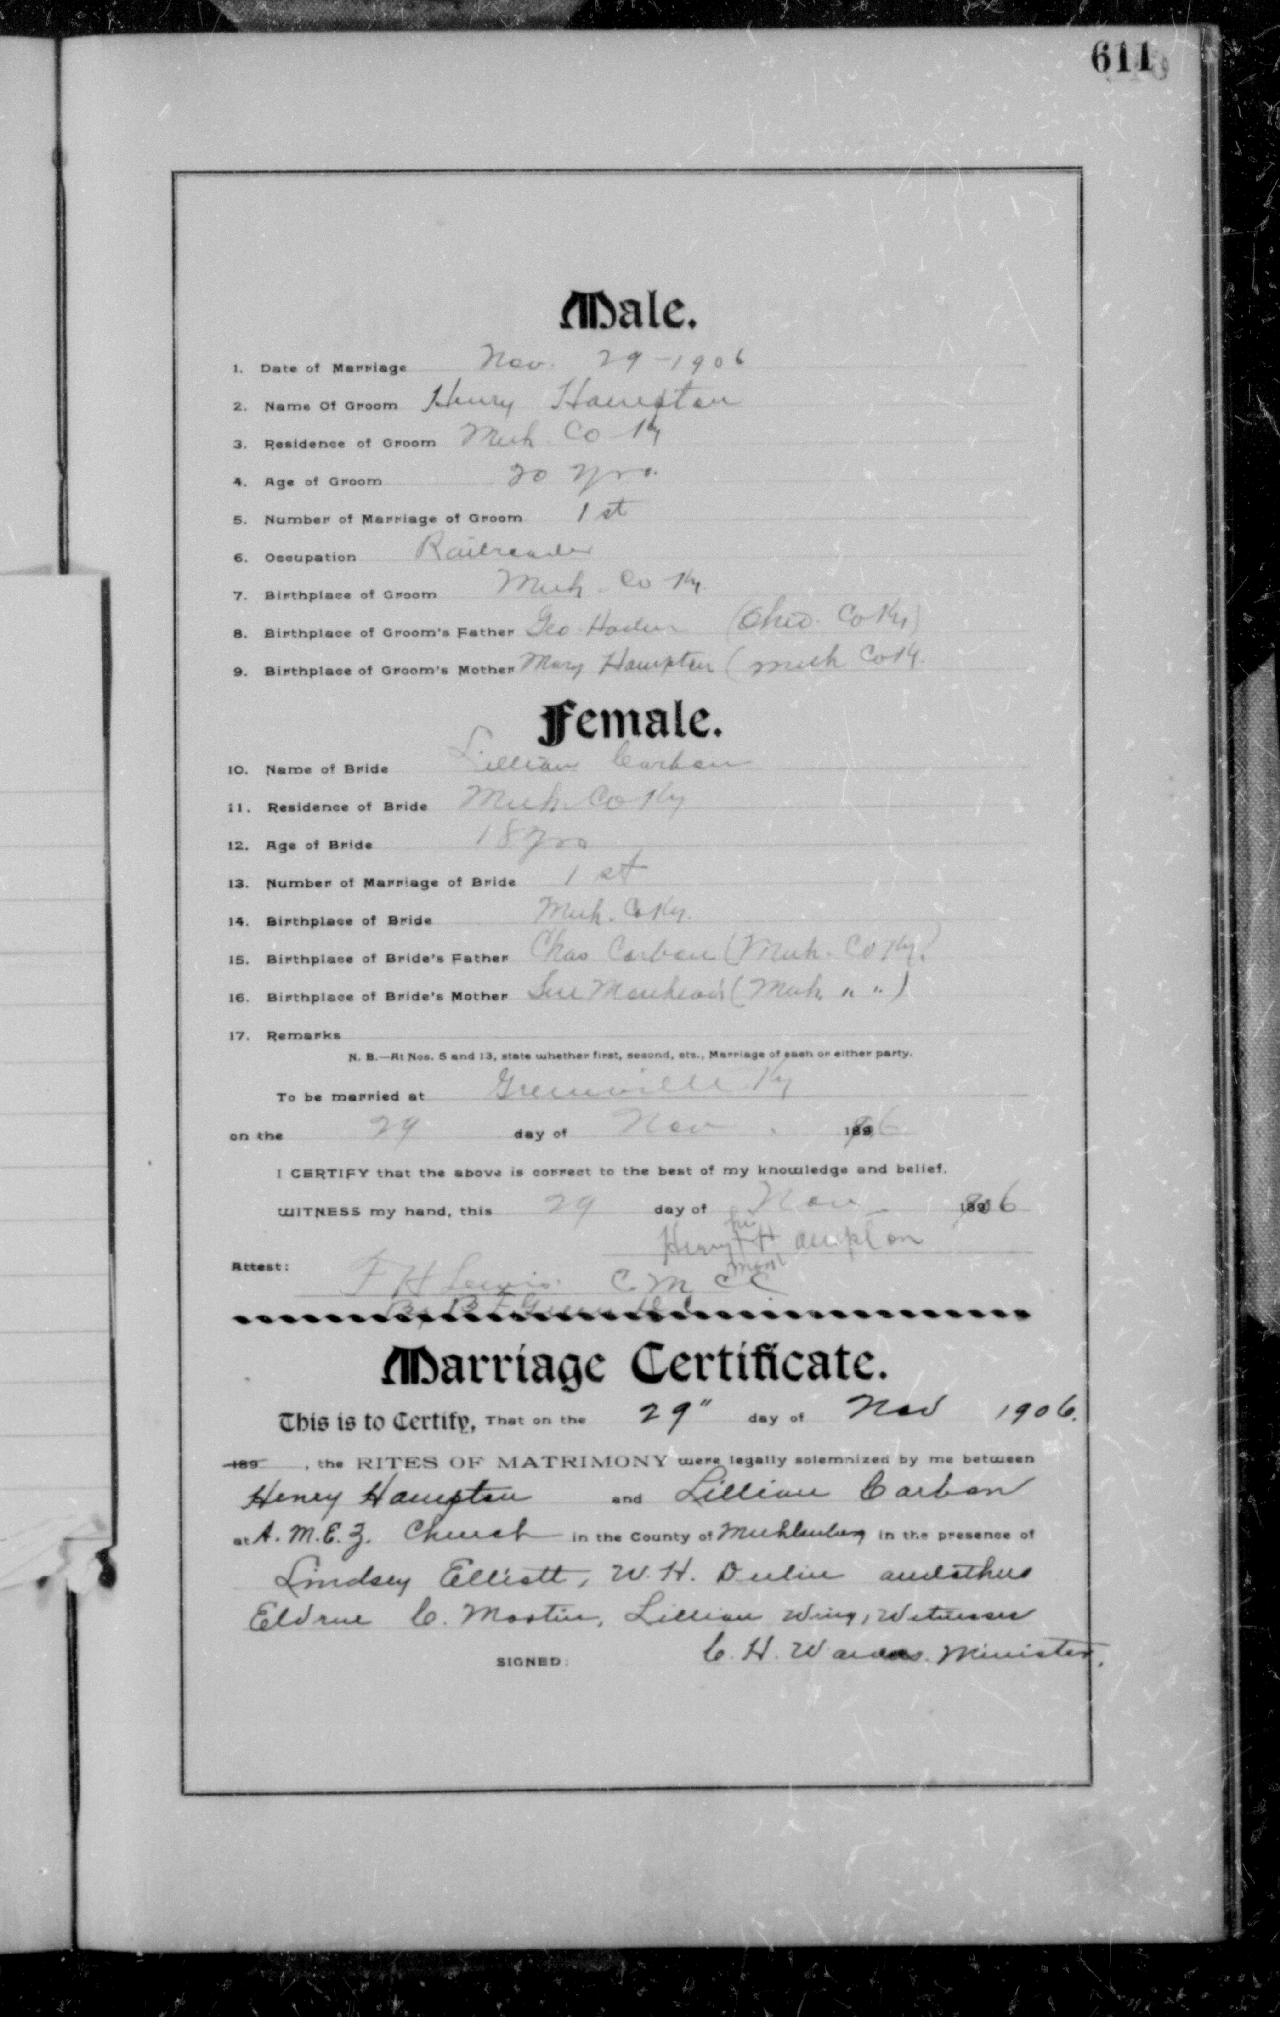 611
Male.
1. Date of Marriage Nov. 29 - 1906
2. Name Of Groom Henry Hampton
3. Residence of Groom Muh. Co Ky
4. Age of Groom 20 yrs.
5. Number of Marriage of Groom 1st
6. Occupation Railroader
7. Birthplace of Groom Muh. Co Ky.
8. Birthplace of Groom's Father Geo. (Ohio. Co Ky)
9. Birthplace of Groom's Mother Mary Hampton (Muh Co Ky.
Female.
10. Name of Bride Lillian Carban
11. Residence of Bride Muh. Co Ky
12. Age of Bride 18 yrs
13. Number of Marriage of Bride 1st
14. Birthplace of Bride Muh. Co Ky.
15. Birthplace of Bride's Father Chas Carban (Muh. Co Ky.)
16. Birthplace of Bride's Mother Sue (Muh. " ")
17. Remarks
N. B.—At Nos. 5 and 13, state whether first, second, etc., Marriage of each or either party.
To be married at Greenville Ky
on the 29 day of Nov. 1906
I CERTIFY that the above is correct to the best of my knowledge and belief.
WITNESS my hand, this 29 day of Nov 1906
his
Henry + Hampton
mark
Attest: F H Lewis. C M C C
By B F Green D.C.
Marriage Certificate.
This is to Certify, That on the 29" day of Nov 1906.
189 , the RITES OF MATRIMONY were legally solemnized by me between
Henry Hampton and Lillian Carban
at A. M. E. Z. Church in the County of Muhlenberg in the presence of
Lindsey Elliott, W. H. Dulin and others
C. Martin, Lillian Wing, Witnesses
SIGNED: C. H. Minister.